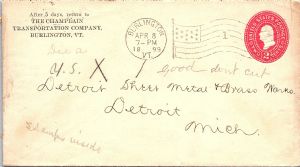 After 5 days, return to
THE CHAMPLAIN
TRANSPORTATION COMPANY,
BURLINGTON, VT.
BURLINGTON
APR 8
7-PM
1899
VT.
1
UNITED STATES POSTAGE
2
U.S. X
good dont cut
Detroit Sheet Metal & Brass Works.
Detroit
Mich.
Stamps inside